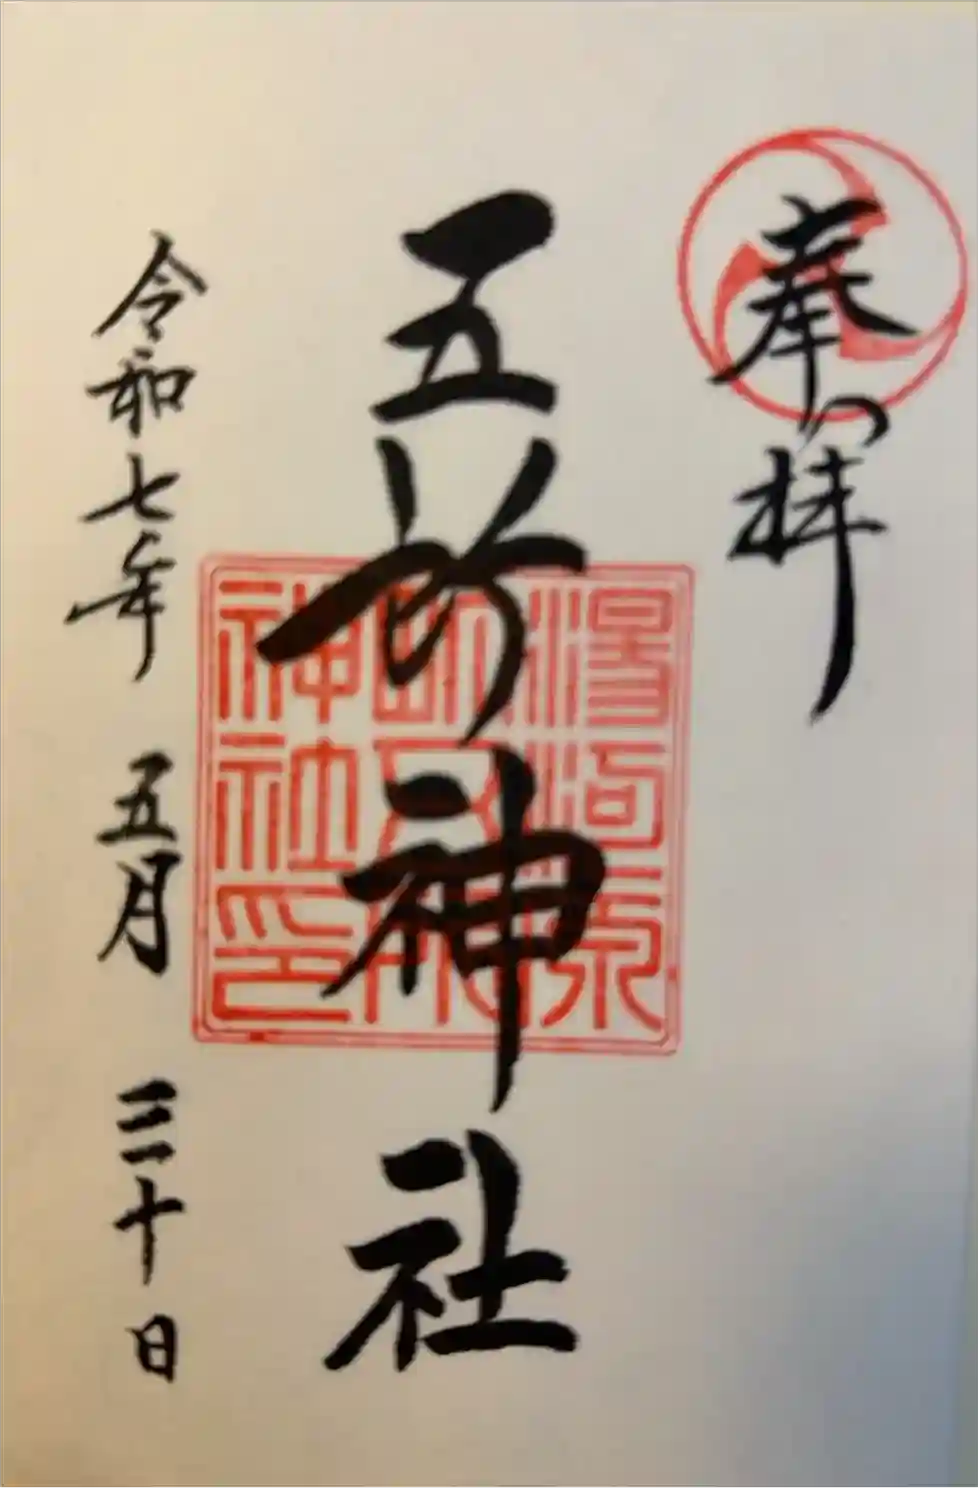 奉拝
五所神社
令和七年 五月 三十日
湯河原
町五所
神社印